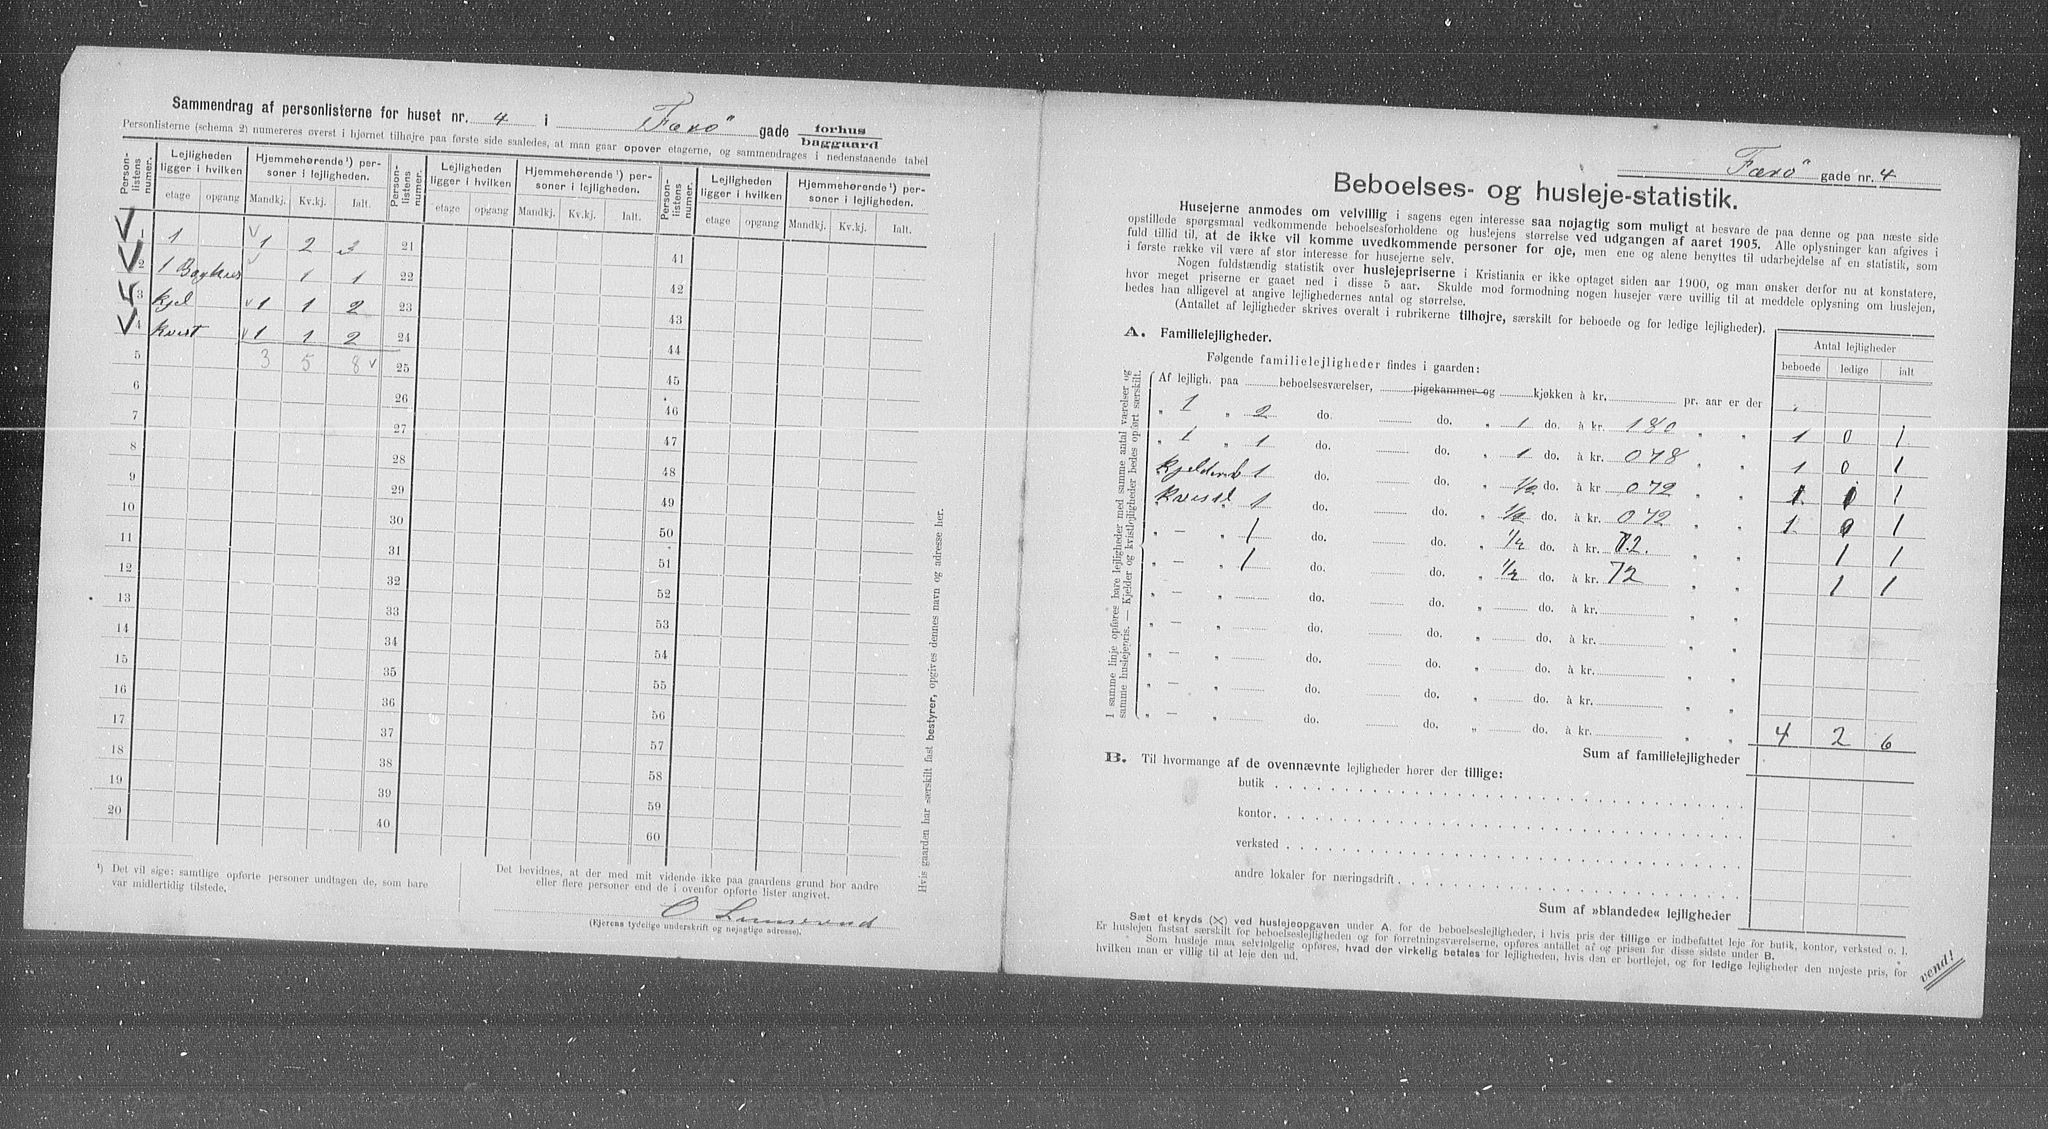 Sammendrag af personlisterne for huset nr. 4 i Færø gade forhus
baggaard
Personlisterne (schema 2) numereres øverst i hjørnet tilhøjre paa første side saaledes, at man gaar opover etagerne, og sammendrages i nedenstaaende tabel
Person-listens numer. Lejligheden ligger i hvilken Hjemmehørende¹) personer i lejligheden. Person-listens numer. Lejligheden ligger i hvilken Hjemmehørende¹) personer i lejligheden. Person-listens numer. Lejligheden ligger i hvilken Hjemmehørende¹) personer i lejligheden.
etage opgang Mandkj. Kv.kj. Ialt. etage opgang Mandkj. Kv.kj. Ialt. etage opgang Mandkj. Kv.kj. Ialt.
1 1 1 2 3 21 41
2 1 Baghus 1 1 22 42
3 Kjel 1 1 2 23 43
4 Kvist 1 1 2 24 44
5 3 5 8 25 45
6 26 46
7 27 47
8 28 48
9 29 49
10 30 50
11 31 51
12 32 52
13 33 53
14 34 54
15 35 55
16 36 56
17 37 57
18 38 58
19 39 59
20 40 60
¹) Det vil sige: samtlige opførte personer undtagen de, som bare
var midlertidig tilstede.
Det bevidnes, at der med mit vidende ikke paa gaardens grund bor andre
eller flere personer end de i ovenfor opførte lister angivet.
(Ejerens tydelige underskrift og nøjagtige adresse).
Hvis gaarden har særskilt fast bestyrer, opgives dennes navn og adresse her.
Færø gade nr. 4
Beboelses- og husleje-statistik.
Husejerne anmodes om velvillig i sagens egen interesse saa nøjagtig som muligt at besvare de paa denne og paa næste side
opstillede spørgsmaal vedkommende beboelsesforholdene og huslejens størrelse ved udgangen af aaret 1905. Alle oplysninger kan afgives i
fuld tillid til, at de ikke vil komme uvedkommende personer for øje, men ene og alene benyttes til udarbejdelse af en statistik, som
i første række vil være af stor interesse for husejerne selv.
Nogen fuldstændig statistik over huslejepriserne i Kristiania er ikke optaget siden aar 1900, og man ønsker derfor nu at konstatere,
hvor meget priserne er gaaet ned i disse 5 aar. Skulde mod formodning nogen husejer være uvillig til at meddele oplysning om huslejen,
bedes han alligevel at angive lejlighedernes antal og størrelse.
(Antallet af lejligheder skrives overalt i rubrikerne tilhøjre, særskilt for beboede og for ledige lejligheder).
A. Familielejligheder.
Antal lejligheder
Følgende familielejligheder findes i gaarden:
beboede ledige ialt
Af lejligh. paa beboelsesværelser, pigekammer og kjøkken à kr. pr. aar er der
„ 1 „ 2 do. do. „ 1 do. à kr. 180 „ „ 1 0 1
„ 1 „ 1 do. do. „ 1 do. à kr. 078 „ „ 1 0 1
1 do. do. „ 1/2 do. à kr 072 „ „ 1 1
1 do. do. „ 1/2 do. à kr. 072 „ „ 1 0 1
„ — „ 1 do. do. „ 1/2 do. à kr. 72. „ „ 1 1
„ — „ 1 do. do. „ 1/2 do. à kr. 72 „ „ 1 1
„ — „ do. do. „ do. à kr. „ „
„ — „ do. do. „ do. à kr. „ „
„ — „ do. do. „ do. à kr. „ „
„ — „ do. do. „ do. à kr. „ „
„ — „ do. do. „ do. à kr. „ „
Sum af familielejligheder 4 2 6
I samme linje opføres bare lejligheder med samme antal værelser og
samme huslejepris. — Kjelder og kvistlejligheder bedes opført særskilt.
B. Til hvormange af de ovennævnte lejligheder hører der tillige:
butik
kontor
verksted
andre lokaler for næringsdrift
Sum af »blandede« lejligheder
Sæt et kryds (X) ved huslejeopgaven under A. for de beboelseslejligheder, i hvis pris der tillige er indbefattet leje for butik, kontor, verksted o. l.
Er huslejen fastsat særskilt for beboelseslejligheden og for forretningsværelserne, opføres antallet af og prisen for disse sidste under B.
Som husleje maa selvfølgelig opføres, hvad der virkelig betales for lejligheden, hvis den er bortlejet, og for ledige lejligheder den nøjeste pris, for
hvilken man er villig til at leie den ud.
vend!